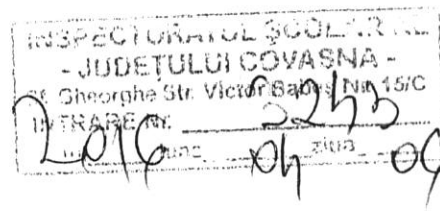 INSPECTORATUL ȘCOLAR AL
- JUDEȚULUI COVASNA -
Sf. Gheorghe Str. Victor Babeș Nr. 15/C
INTRARE Nr.
2016 luna 04 ziua